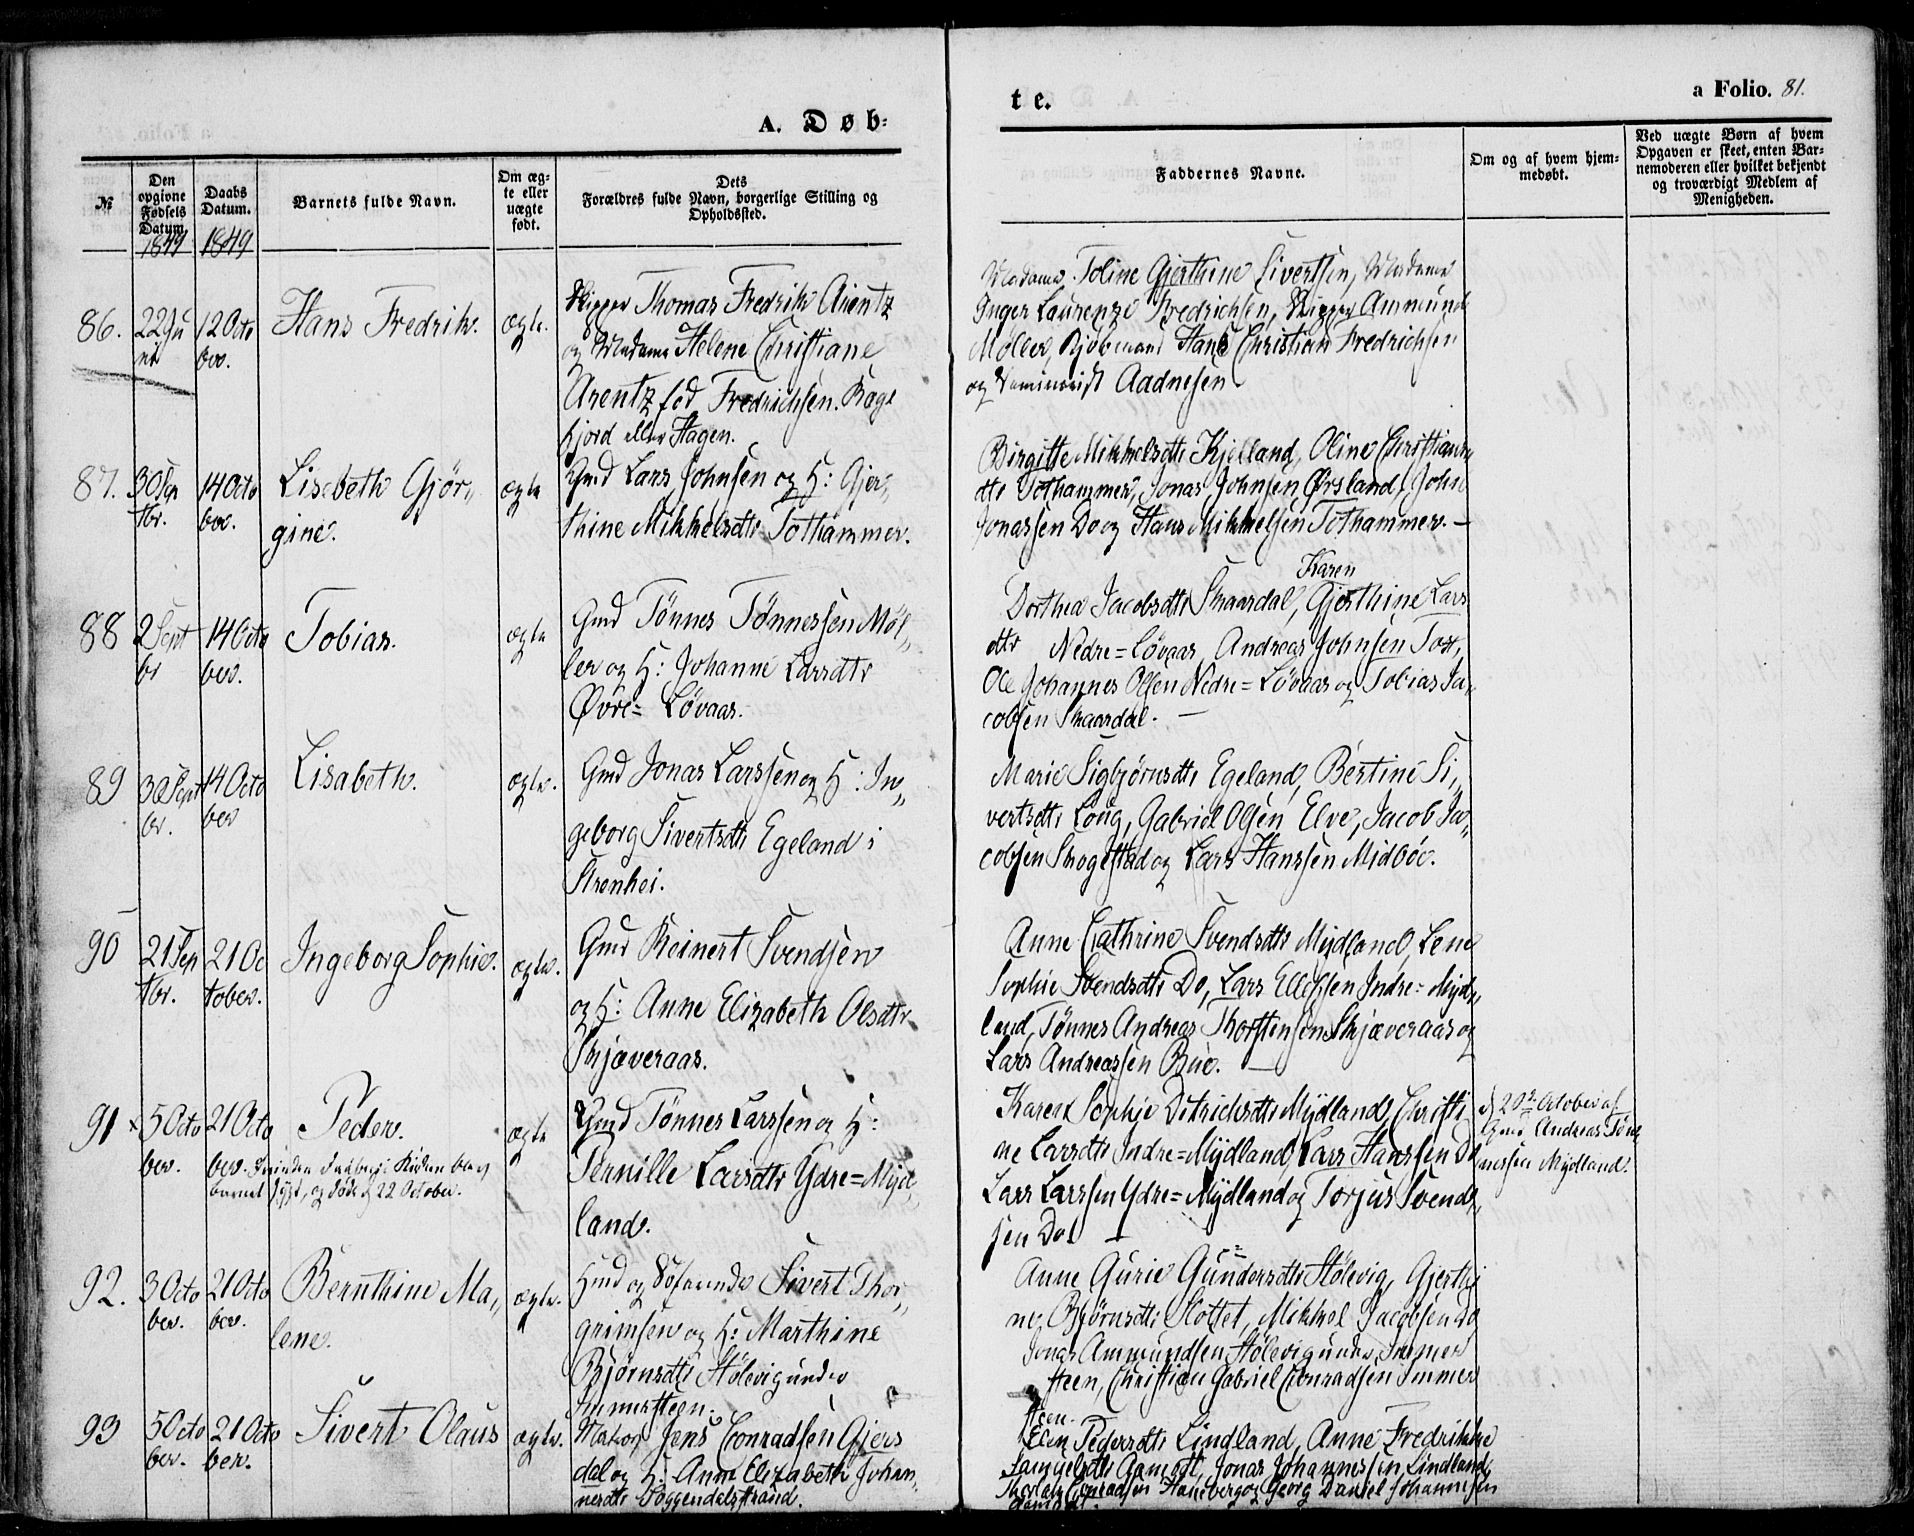 A. Døb-
te.
a Folio. 81.
№
Den opgivne Fødsels Datum.
1849
Daabs Datum.
1849
Barnets fulde Navn.
Om æg-
te eller
uægte
født.
Dets
Forældres fulde Navn, borgerlige Stilling og
Opholdssted.
Faddernes Navne.
Om og af hvem hjem-
medøbt.
Ved uægte Børn af hvem
Opgaven er skeet, enten Bar-
nemoderen eller hvilket bekjendt
og troværdigt Medlem af
Menigheden.
86.
22 Ju
ni
12 Octo
ber.
Hans Fredrik.
ægte.
Skipper Thomas Fredrik Arentz
og Madame Helene Christiane
Arentz fød Fredrichsen. Rege
fjord eller Hagen.
Madame Toline Gjerthine Sivertsen, Madame
Inger Laurenze Fredrichsen, Skipper Ammund
Møller, Kjøbmand Hans Christian Fredrichsen
og Seminarist Aadnesen
87.
30 Sep
tbr.
14 Octo
ber.
Lisebeth Gjør„
gine.
ægte
Gmd Lars Johnsen og H: Gjer„
thine Mikkelsdtr Tothammer.
Birgitte Mikkelsdtr Kjelland, Oline Christians
dtr Tothammer, Jonas Johnsen Ørsland, John
Jonassen Do og Hans Mikkelsen Tothammer. —
88
2 Sept
br
14 Octo
ber.
Tobias.
ægte
Gmd Tønnes Tønnessen Møl„
ler og H: Johanne Larsdtr
Øvre= Løvaas.
Karen
Dorthea Jacobsdtr Skaardal, Gjerthine Lars
dtr Nedre=Løvaas, Andreas Johnsen Tost,
Ole Johannes Olsen Nedre=Løvaas og Tobias Ja„
cobsen Skaardal. —
89
30 Sept
br.
14 Octo
ber
Lisabeth.
ægte.
Gmd Jonas Larssen og H: In„
geborg Sivertsdtr Egeland i
Strenhei.
Marie Sigbjørnsdtr Egeland, Bertine Si„
vertsdtr Long, Gabriel Olsen Elve, Jacob Ja„
cobsen Skogestad og Lars Hanssen Midbøe.
90
21 Sep
tbr.
21 Oc
tober.
Ingeborg Sophie.
ægte.
Gmd Reinert Svendsen
og H: Anne Elizabeth Olsdtr
Skjæveraas.
Anne Cathrine Svendsdtr Mydland, Lene
Sophie Svendsdtr Do, Lars Ellefsen Indre=Myd„
land, Tønnes Andreas Thorstensen Skjæveraas og
Lars Andreassen Bue. —
91
5 Octo
ber.
21 Octo
ber.
Peder.
ægte
Inden Indberi Kirken blev
barnet sygt, og døde d. 22 October.
Gmd Tønnes Larssen og H:
Pernille Larsdtr Ydre=Myd„
land.
Karen Sophie Ditrichsdtr Mydland, Christi
ne Larsdtr Indre=Mydland, Lars Hanssen Do
Lars Larssen Ydre=Mydland og Torjus Svend„
sen Do. —
d. 20de October af
Gmd Andreas Tøn
nessen Mydland.
92.
3 Octo
ber.
21 Octo
ber.
Bernthine Ma„
lene.
ægte.
Hmd og Søfarende Sivert Thor„
grimsen og H: Marthine
Bjørnsdtr Hølevig under
Immersteen.
Anne Gurie Gundersdtr Hølevig, Gjerthi
ne Bjørnsdtr Slottet, Mikkel Jacobsen Do
Jonas Ammundsen Hølevig under Immer
steen, Christian Gabriel Conradsen Immer
steen.
93
5 Octo
ber.
21 Octo
ber.
Sivert Olaus
ægte.
Matros Jens Conradsen Gjers
dal og H: Anne Elizabeth Johan„
nesdtr Boggendalsstrand.
Elen Pedersdtr Lindland, Anne Fredrikke
Samuelsdtr Aamodt, Jonas Johannessen Lindland,
Conradsen Haneberg og Georg Daniel Johannesen
Aamodt.